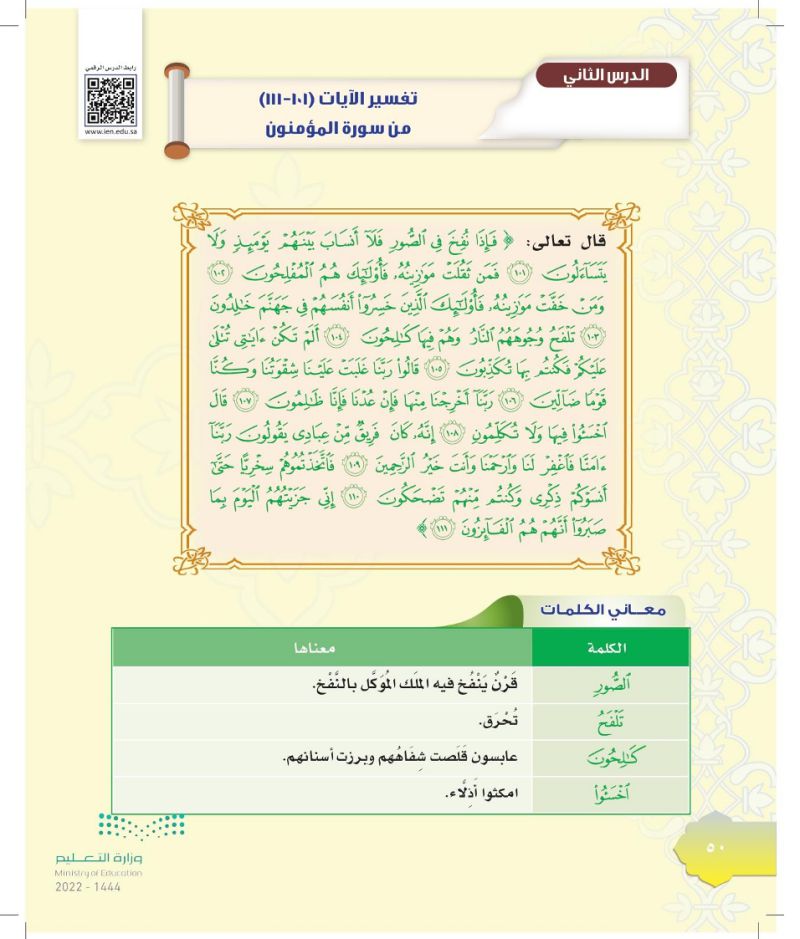 رابط الدرس الرقمي
www.ien.edu.sa
الدرس الثاني
تفسير الآيات (١٠١-١١١)
من سورة المؤمنون
قال تعالى: ﴿ فَإِذَا نُفِخَ فِي ٱلصُّورِ فَلَآ أَنسَابَ بَيْنَهُمْ يَوْمَئِذٍ وَلَا
يَتَسَآءَلُونَ ١٠١ فَمَن ثَقُلَتْ مَوَٰزِينُهُۥ فَأُوْلَٰٓئِكَ هُمُ ٱلْمُفْلِحُونَ ١٠٢
وَمَنْ خَفَّتْ مَوَٰزِينُهُۥ فَأُوْلَٰٓئِكَ ٱلَّذِينَ خَسِرُوٓاْ أَنفُسَهُمْ فِي جَهَنَّمَ خَٰلِدُونَ
١٠٣ تَلْفَحُ وُجُوهَهُمُ ٱلنَّارُ وَهُمْ فِيهَا كَٰلِحُونَ ١٠٤ أَلَمْ تَكُنْ ءَايَٰتِي تُتْلَىٰ
عَلَيْكُمْ فَكُنتُم بِهَا تُكَذِّبُونَ ١٠٥ قَالُواْ رَبَّنَا غَلَبَتْ عَلَيْنَا شِقْوَتُنَا وَكُنَّا
قَوْمًا ضَآلِّينَ ١٠٦ رَبَّنَآ أَخْرِجْنَا مِنْهَا فَإِنْ عُدْنَا فَإِنَّا ظَٰلِمُونَ ١٠٧ قَالَ
ٱخْسَـُٔواْ فِيهَا وَلَا تُكَلِّمُونِ ١٠٨ إِنَّهُۥ كَانَ فَرِيقٌ مِّنْ عِبَادِي يَقُولُونَ رَبَّنَآ
ءَامَنَّا فَٱغْفِرْ لَنَا وَٱرْحَمْنَا وَأَنتَ خَيْرُ ٱلرَّٰحِمِينَ ١٠٩ فَٱتَّخَذْتُمُوهُمْ سِخْرِيًّا حَتَّىٰٓ
أَنسَوْكُمْ ذِكْرِي وَكُنتُم مِّنْهُمْ تَضْحَكُونَ ١١٠ إِنِّي جَزَيْتُهُمُ ٱلْيَوْمَ بِمَا
صَبَرُوٓاْ أَنَّهُمْ هُمُ ٱلْفَآئِزُونَ ١١١ ﴾
معـــاني الكلمات
الكلمة معناها
ٱلصُّورِ قَرْنٌ يَنْفُخ فيه الملَك المُوَكَّل بالنَّفْخ.
تَلْفَحُ تُحْرَق.
كَٰلِحُونَ عابسون قَلَصت شِفَاهُهم وبرزت أسنانهم.
ٱخْسَـُٔواْ امكثوا أَذِلَّاء.
وزارة التعـــليم
Ministry of Education
2022 - 1444
٥٠